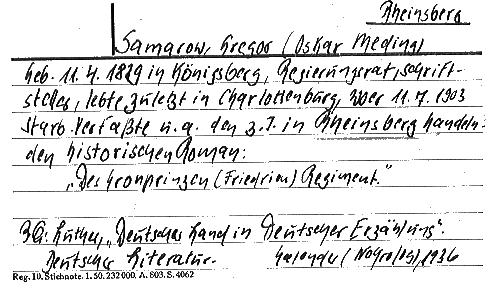 Rheinsberg
Samarow, Gregor (Oskar Meding)
Geb. 11.4.1829 in Königsberg, Regierungsrat, Schrift-
steller, lebte zuletzt in Charlottenburg, wo er 11.7.1903
starb. Verfaßte u.a. den z.T. in Rheinsberg handeln-
den historischen Roman:
"Des Kronprinzen (Friedrich) Regiment."
Luther, "Deutsches Land in Deutscher Erzählung".
Deutscher Literatur- Kalender (Nekrolog), 1936
Reg. 10. Stichnote. 1. 50. 232000. A. 803. S. 4062